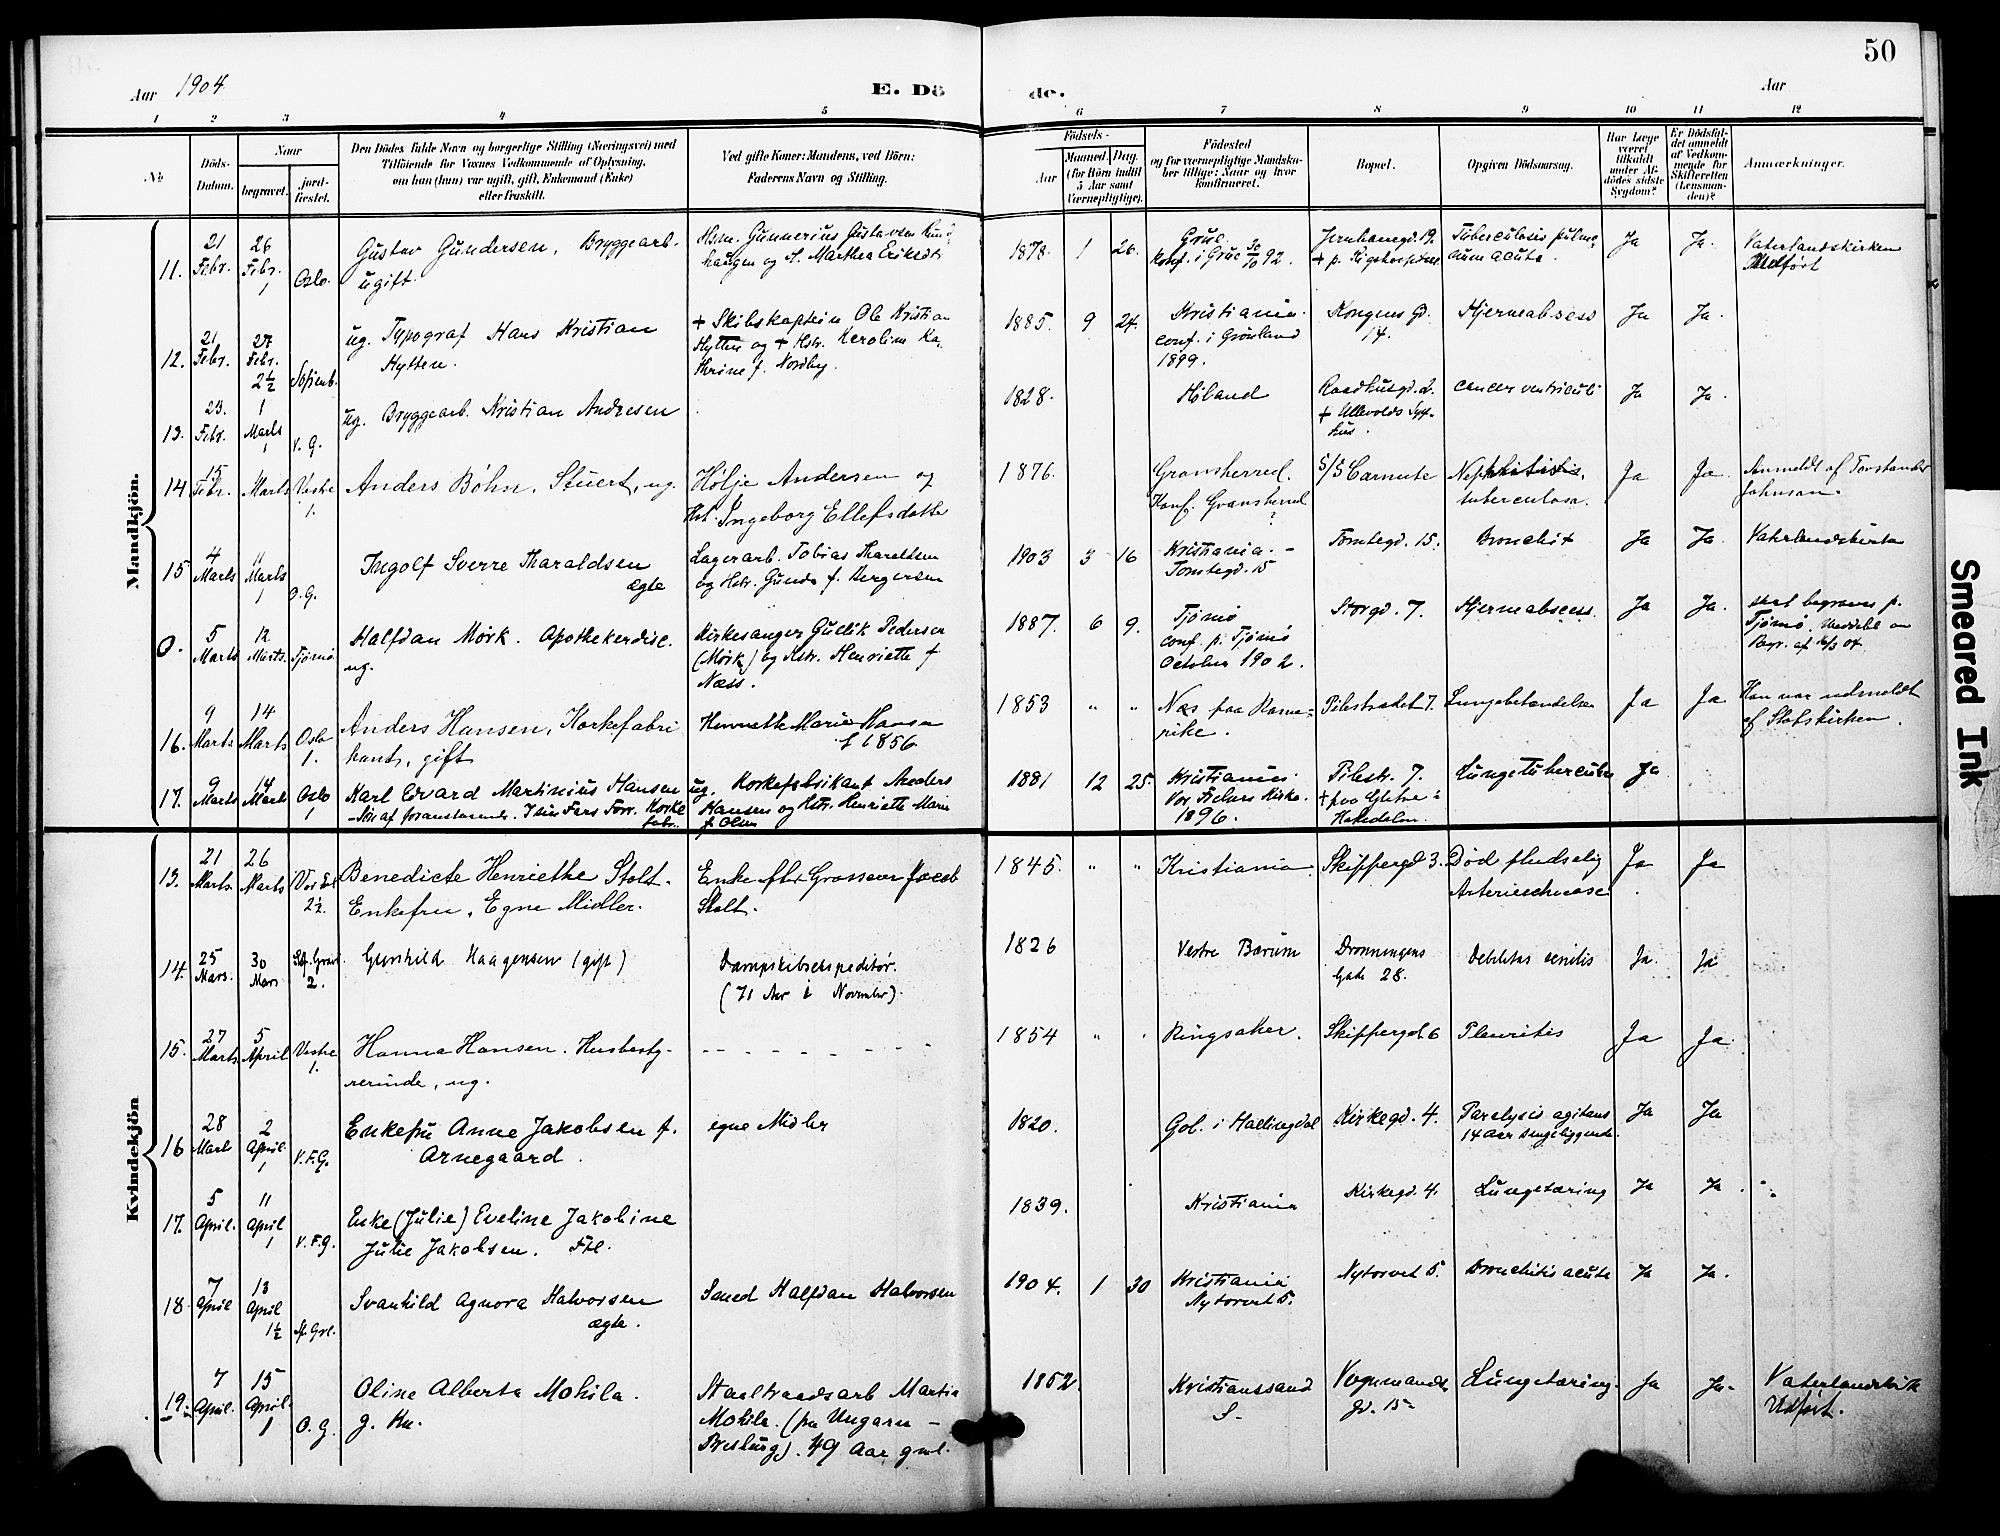 50
Aar 1904
E. Dö
de.
Aar
1 2 3 4 5 6 7 8 9 10 11 12
No
Döds-Datum.
Naar
begravet.
jord-fæstet.
Den Dödes fulde Navn og borgerlige Stilling (Næringsvei) med
Tilföiende for Voxnes Vedkommende af Oplysning,
om han (hun) var ugift, gift, Enkemand (Enke)
eller fraskilt.
Ved gifte Koner: Mandens, ved Börn:
Faderens Navn og Stilling.
Födsels-
Aar
Maaned. Dag.
(for Börn indtil
5 Aar samt
Værnepligtige).
Födested
og for værnepligtige Mandska-
ber tillige: Naar og hvor
konfirmeret.
Bopæl.
Opgiven Dödsaarsag.
Har Læge
været
tilkaldt
under Af-
dödes sidste
Sygdom?
Er Dödsfal-
det anmeldt
af Vedkom-
mende for
Skifteretten
(Lensman-
den)?
Anmærkninger.
Mandkjön.
11. 21 Febr. 26 Febr. 1 Oslo. Gustav Gundersen, Bryggearb. ugift. 1878 1 26. Grue Konf. i Grue 92. Ja Ja. Vaterlandskirken
12. 21 Febr. 27 Febr. 2½ Sofienb. ug. Typograf Hans Kristian Hytten. + Skibskaptein Ole Kristian Hytten og + Hstr. Karoline Ka-
thrine f. Nordby. 1885. 9 24. Kristiania. conf. i Grønland 1899. Kongens Gd. 14. Hjerneabsess Ja Ja.
13. 23. Febr. 1 Marts 1 V. G. ug. Bryggearb. Kristian Andresen 1828. Høland Raadhusgd. 2. + Ullevolds Syg-
hus. cancer ventriculi Ja Ja.
14 15 Febr. Marts Vestre 1. Anders Bøhn, Stuert, ug. Hølje Andersen og Hst. Ingeborg Ellefsdatter 1876. Gransherred. Konf. Gransherred ? S/S Carmute tuberculosa. Ja Ja. Anmeldt af Forstander Johnson.
15 4 Marts 11 Marts 1 O. G. Ingolf Sverre Tharaldsen ægte Lagerarb. Tobias Tharaldsen og Hstr. Gunda f. Bergersen 1903 3 16 Kristiania. - Tomtegd. 15 Tomtegd. 15. Bronchit Ja Ja. Vaterlandskirken
0. 5 Marts 12 Marts. Tjømø Halfdan Mørk. Apothekerdisc. ug. Kirkesanger Gudik Pedersen (Mørk) og Hstr. Henriette f Næss. 1887. 6 9. Tjømø conf. p. Tjømø October 1902. Storgd. 7. Hjerneabscess. Ja Ja. skal begraves p. Tjømø.
16. 9 Marts 14 Marts Oslo 1. Anders Hansen, Korkefabri
kant, gift Henriette Marie Hansen f 1856 1853 " " Næs paa Rome-
rike. Pilestrædet 7. Lungebetændelse Ja Ja Han var udmeldt af Statskirken.
17. 9 Marts 14 Marts Oslo 1 Karl Edvard Martinius Hansen ug. - Søn af foranstaaende. Korkefabrikant Anders Hansen og Hstr. Henriette Marie f Olsen 1881 12 25. Kristiania. Vor Frelsers Kirke. 1896. Pilestr. 7. + paa Glitre - Hakedalen. Lungetuberculos Ja
Kvindekjön
13. 21 Marts 26 Marts Benedicte Henriette Stolt - Enkefru, Egne Midler. Enke efter Grosserer Jacob Stolt. 1845. " " Kristiania. Skippergd 3. Død pludselig Arterieschlerose Ja Ja
14. 25 Mars. 30 Mars 2. Gunhild Haagensen (gift) Dampskibsekspeditør. (71 Aar i November). 1826 Vestre Bærum Dronningens Gate 28. Debilitas senilis Ja. Ja
15. 27 Marts 5 April Vestre 1. Hanna Hansen. Husbesty-
rerinde, ug. 1854 " " Ringsaker. Skippergd. 6 Pleuritis Ja Ja.
16 28 Mart 2 April. 1 V.F.G. Enkefru Anne Jakobsen f. Arnegaard. egne Midler 1820. Gol. i Hallingdal Kirkegd. 4. Paralysis agitans 14 Aar sengeliggende. Ja Ja
17. 5 April. 11 April 1 V.F.G. Enke (Julie) Eveline Jakobine Julie Jakobsen. Ftl. 1839. Kristiania Kirkegd. 4. Lungetæring Ja Ja
18. 7 April 13 April 1½ Svanhild Agnora Halvorsen ægte. Smed Halfdan Halvorsen 1904. 1 30 Kristiania Nytorvet 5. Nytorvet 5. Bronchitis acuta Ja Ja.
19. 7 April. 15 April. 1 O. G. Oline Alberta Mohila. g. Kn. Staaltraadsarb Martin Mohila. (fra Ungarn - Presburg). 49 Aar gml. 1852 Kristianssand S- Vognmandsgd. 15- Lungetæring. Ja Ja- Vaterlandskirk Udført.
Smeared Ink